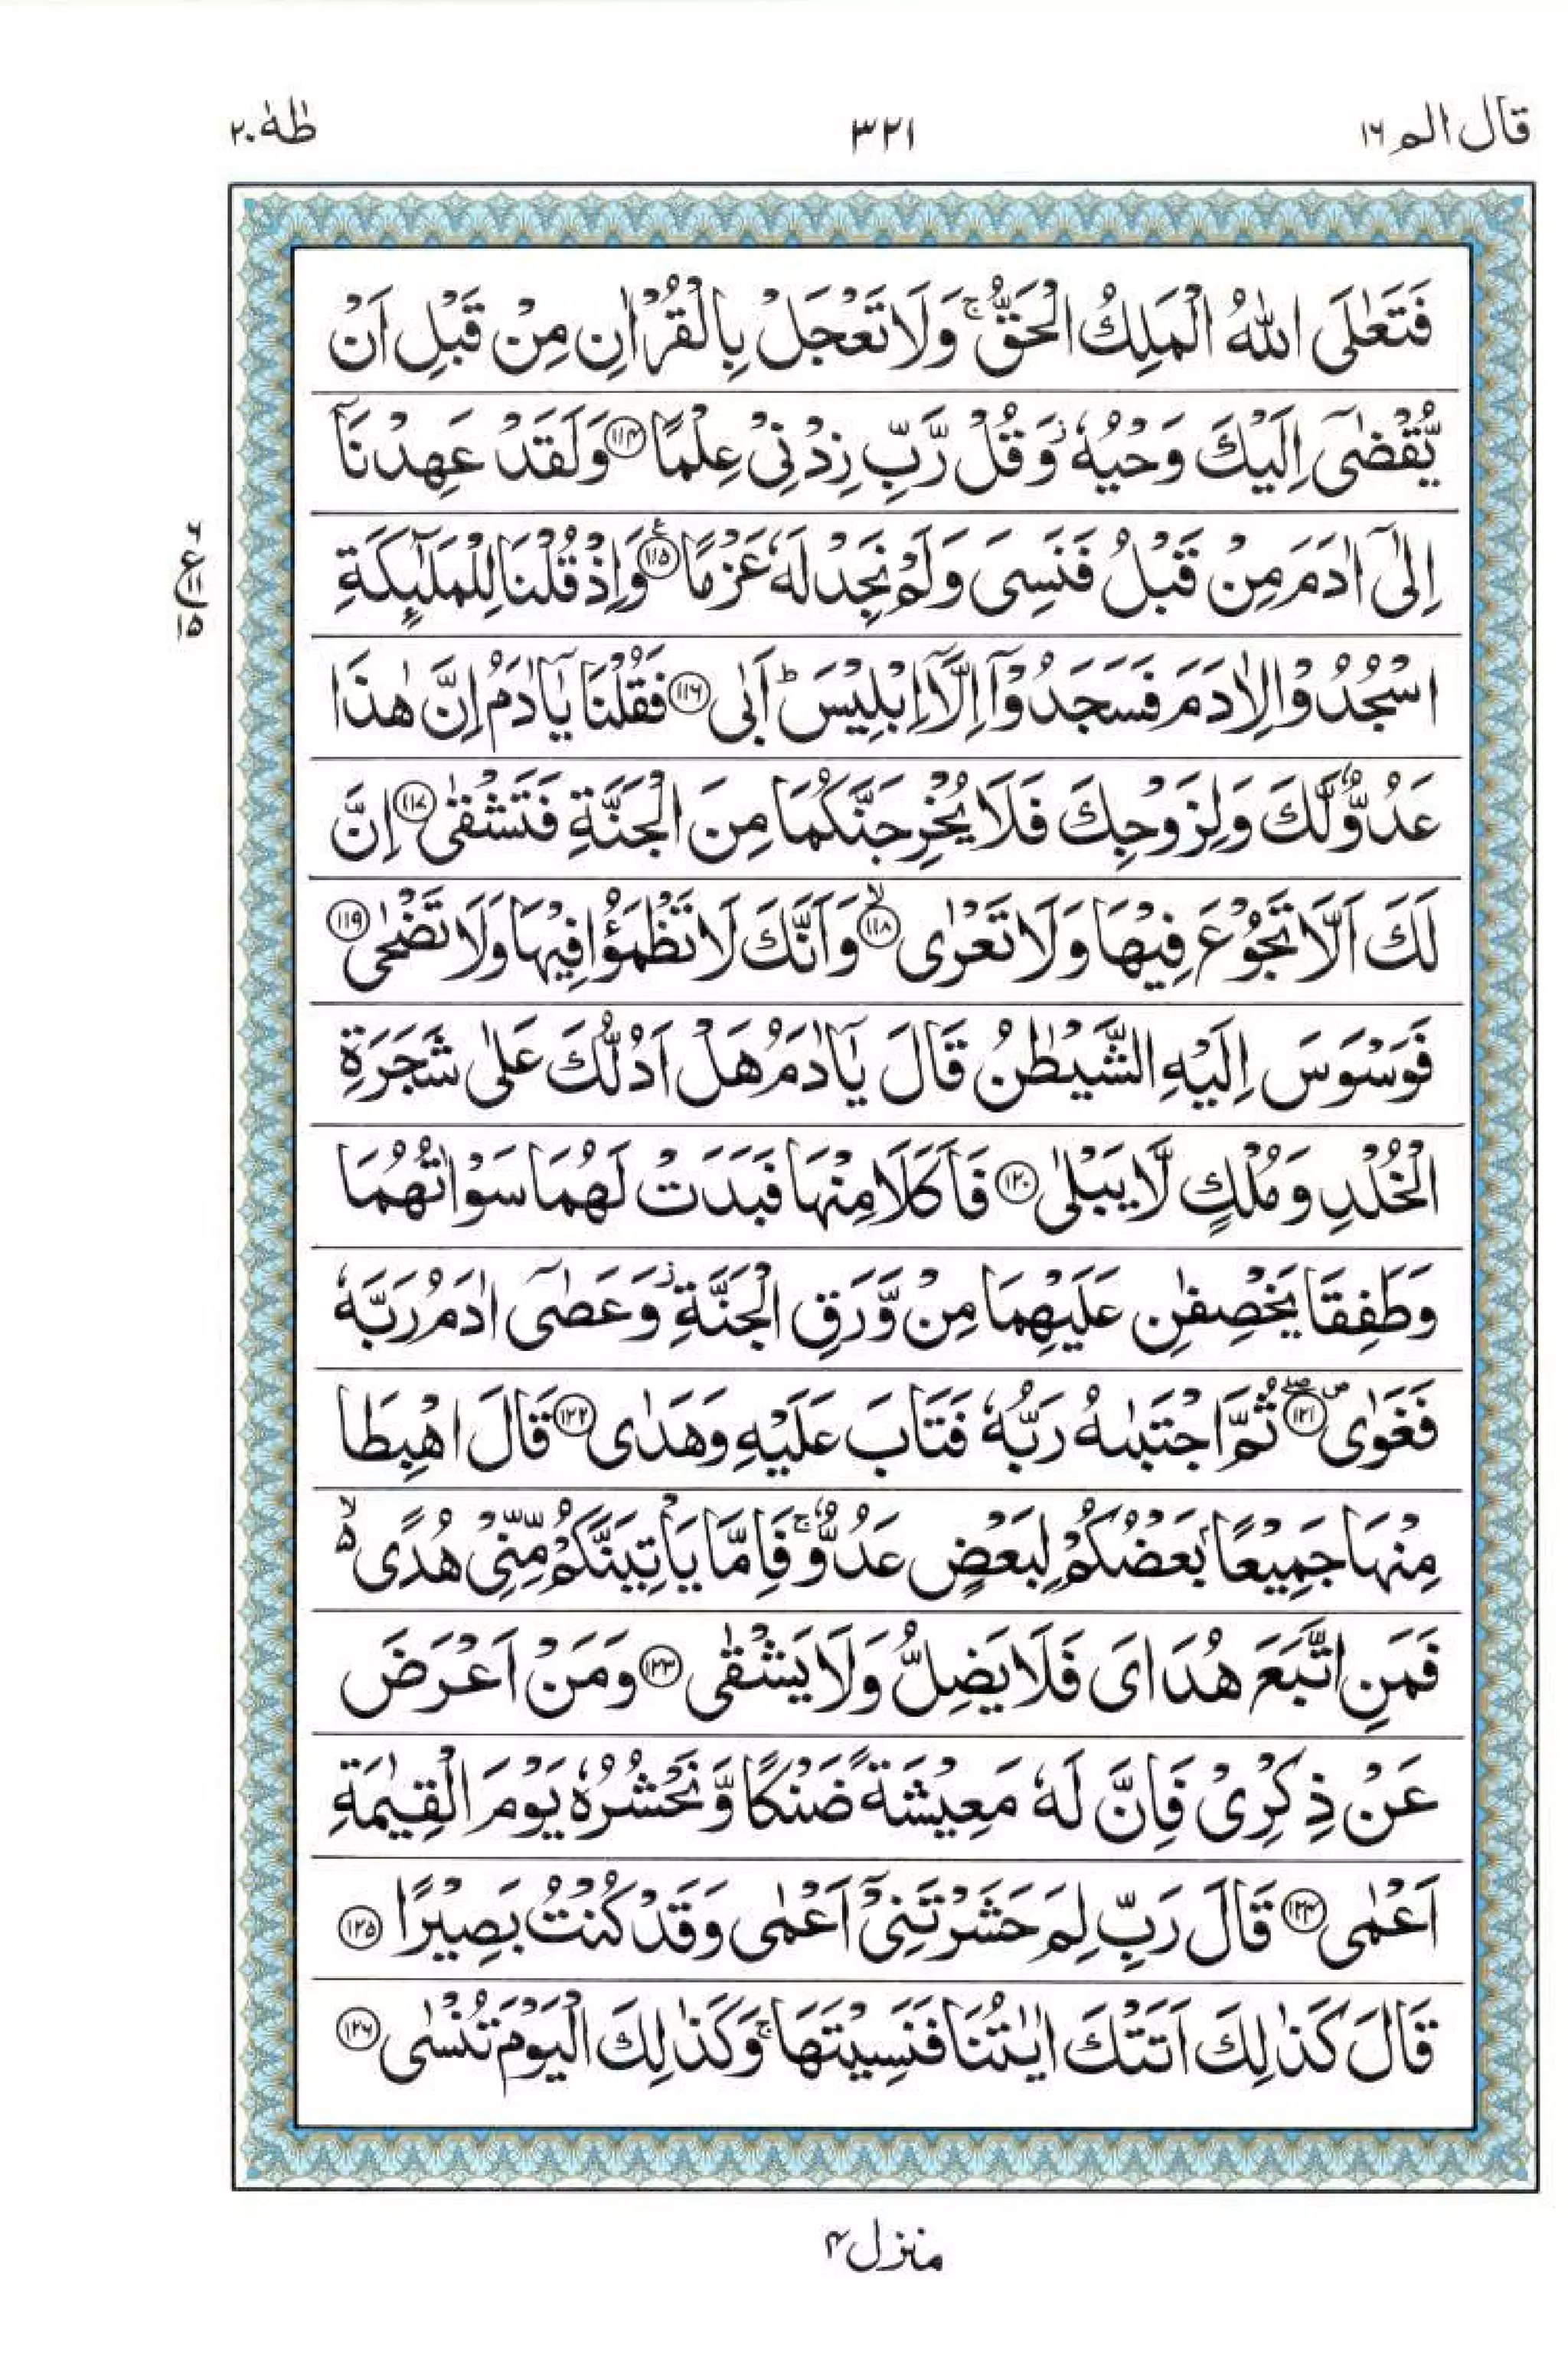 قال الم ١٦
٣٢١
طٰهٰ ٢٠
فَتَعٰلَى اللّٰهُ الْمَلِكُ الْحَقُّ ۚ وَلَا تَعْجَلْ بِالْقُرْاٰنِ مِنْ قَبْلِ اَنْ
يُّقْضٰٓى اِلَيْكَ وَحْيُهٗ ؗ وَقُلْ رَّبِّ زِدْنِيْ عِلْمًا ﴿١١٤﴾ وَلَقَدْ عَهِدْنَاۤ
اِلٰٓى اٰدَمَ مِنْ قَبْلُ فَنَسِيَ وَلَمْ نَجِدْ لَهٗ عَزْمًا ﴿١١٥﴾ ع وَاِذْ قُلْنَا لِلْمَلٰٓئِكَةِ
اسْجُدُوْا لِاٰدَمَ فَسَجَدُوْۤا اِلَّاۤ اِبْلِيْسَ ؕ اَبٰى ﴿١١٦﴾ فَقُلْنَا يٰۤاٰدَمُ اِنَّ هٰذَا
عَدُوٌّ لَّكَ وَلِزَوْجِكَ فَلَا يُخْرِجَنَّكُمَا مِنَ الْجَنَّةِ فَتَشْقٰى ﴿١١٧﴾ اِنَّ
لَكَ اَلَّا تَجُوْعَ فِيْهَا وَلَا تَعْرٰى ﴿١١٨﴾ ۙ وَاَنَّكَ لَا تَظْمَؤُا فِيْهَا وَلَا تَضْحٰى ﴿١١٩﴾
فَوَسْوَسَ اِلَيْهِ الشَّيْطٰنُ قَالَ يٰۤاٰدَمُ هَلْ اَدُلُّكَ عَلٰى شَجَرَةِ
الْخُلْدِ وَمُلْكٍ لَّا يَبْلٰى ﴿١٢٠﴾ فَاَكَلَا مِنْهَا فَبَدَتْ لَهُمَا سَوْاٰتُهُمَا
وَطَفِقَا يَخْصِفٰنِ عَلَيْهِمَا مِنْ وَّرَقِ الْجَنَّةِ ؗ وَعَصٰٓى اٰدَمُ رَبَّهٗ
فَغَوٰى ۪ۖ ﴿١٢١﴾ ثُمَّ اجْتَبٰىهُ رَبُّهٗ فَتَابَ عَلَيْهِ وَهَدٰى ﴿١٢٢﴾ قَالَ اهْبِطَا
مِنْهَا جَمِيْعًاۢ بَعْضُكُمْ لِبَعْضٍ عَدُوٌّ ۚ فَاِمَّا يَاْتِيَنَّكُمْ مِّنِّيْ هُدًى ۙ۬
فَمَنِ اتَّبَعَ هُدَايَ فَلَا يَضِلُّ وَلَا يَشْقٰى ﴿١٢٣﴾ وَمَنْ اَعْرَضَ
عَنْ ذِكْرِيْ فَاِنَّ لَهٗ مَعِيْشَةً ضَنْكًا وَّنَحْشُرُهٗ يَوْمَ الْقِيٰمَةِ
اَعْمٰى ﴿١٢٤﴾ قَالَ رَبِّ لِمَ حَشَرْتَنِيْۤ اَعْمٰى وَقَدْ كُنْتُ بَصِيْرًا ﴿١٢٥﴾
قَالَ كَذٰلِكَ اَتَتْكَ اٰيٰتُنَا فَنَسِيْتَهَا ۚ وَكَذٰلِكَ الْيَوْمَ تُنْسٰى ﴿١٢٦﴾
منزل ٤